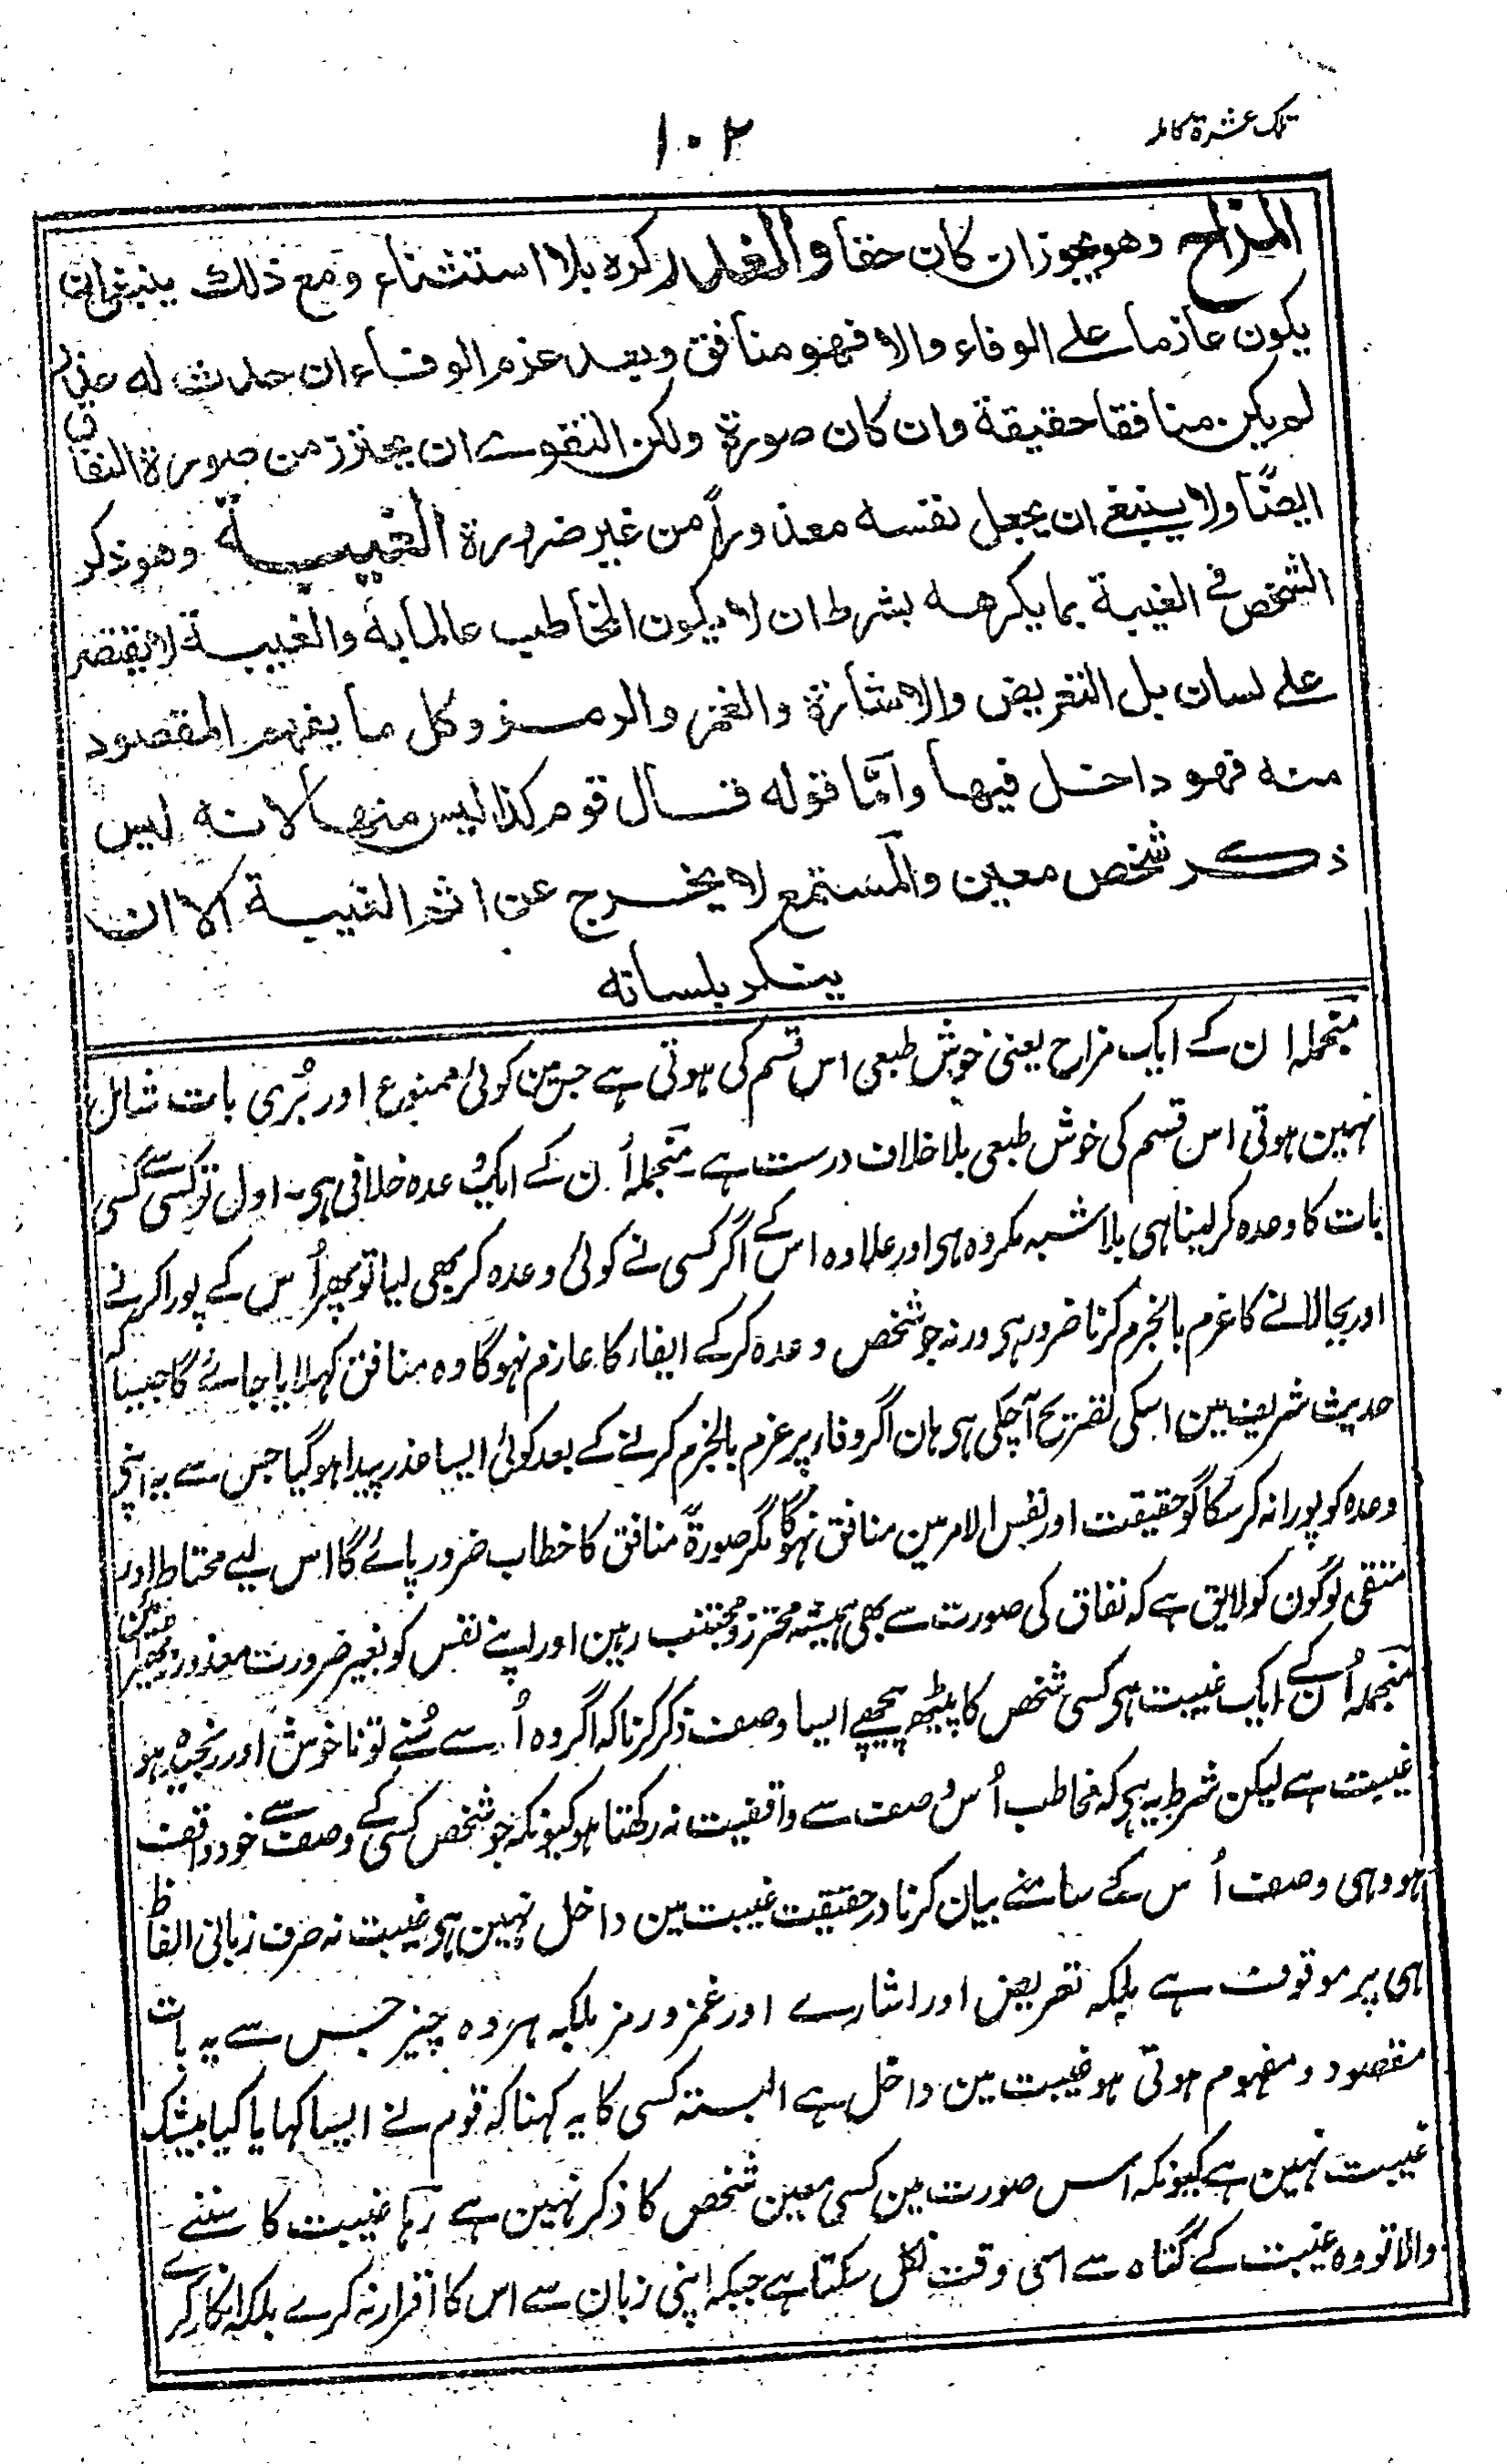 تلک عشرة کاملہ
۱۰۲
المزاح وهو يجوز ان كان حقا والغدر كره بلا استثناء ومع ذلك ينبغى ان
يكون عازما على الوفاء والا فهو منافق وبعد عزم الوفاء ان حدث له عذر
لم يكن منافقا حقيقة وان كان صورة ولكن التقوے ان يحترز من صورة النفاق
ايضًا ولا ينبغے ان يجعل نفسه معذوراً من غير ضرورة الغيبة وهو ذكر
الشخص فے الغيبة بما يكرهه بشرط ان لا يكون المخاطب عالما به والغيبة لا تقتصر
علے لسان بل التعريض والاشارة والغمز والرمز وكل ما يفهم المقصود
منه فهو داخل فيها وامّا قوله قال قوم كذا ليس منها لانه ليس
ذكر شخص معين والمستمع لا يخرج عن اثم الغيبة الا ان
ينكر بلسانه
منجملہ ان کے ایک مزاح یعنی خوش طبعی اس قسم کی ہوتی ہے جس مین کوئی ممنوع اور بُری بات شامل
نہین ہوتی اس قسم کی خوش طبعی بلا خلاف درست ہے۔ منجملہ اُن کے ایک وعدہ خلافی ہی۔ اول تو کسی سے کسی
بات کا وعدہ کر لینا ہی بلا شبہ مکروہ ہی اور علاوہ اس کے اگر کسی نے کوئی وعدہ کر بھی لیا تو پھر اُس کے پورا کرنے
اور بجا لانے کا عزم بالجزم کرنا ضرور ہی ورنہ جو شخص وعدہ کر کے ایفار کا عازم نہوگا وہ منافق کہلایا جائے گا جیسا کہ
حدیث شریف مین اسکی تصریح آچکی ہی ہان اگر وفار پر عزم بالجزم کرنے کے بعد کوئی ایسا عذر پیدا ہوگیا جس سے یہ اپنے
وعدہ کو پورا نہ کر سکا گو حقیقت اور نفس الامر مین منافق نہوگا مگر صورةً منافق کا خطاب ضرور پائے گا اس لیے محتاط اور
متقی لوگون کو لایق ہے کہ نفاق کی صورت سے بھی ہمیشہ محترز و مجتنب رہین اور اپنے نفس کو بغیر ضرورت معذور نہ
منجملہ اُن کے ایک غیبت ہی کسی شخص کا پیٹھ پیچھے ایسا وصف ذکر کرنا کہ اگر وہ اُسے سُنے تو ناخوش اور رنجیدہ ہو
غیبت ہے لیکن شرط یہ ہی کہ مخاطب اُس وصف سے واقفیت نہ رکھتا ہو کیونکہ جو شخص کسی کے وصف سے خود واقف
ہو وہی وصف اُس کے سامنے بیان کرنا درحقیقت غیبت مین داخل نہین ہی غیبت نہ صرف زبانی الفاظ
ہی پر موقوف ہے بلکہ تعریض اور اشارے اور غمز و رمز بلکہ ہر وہ چیز جس سے یہ بات
مقصود و مفہوم ہوتی ہو غیبت مین داخل ہے البتہ کسی کا یہ کہنا کہ قوم نے ایسا کہا یا کیا بیشک
غیبت نہین ہے کیونکہ اس صورت مین کسی معین شخص کا ذکر نہین ہے رہا غیبت کا سننے
والا تو وہ غیبت کے گناہ سے اسی وقت نکل سکتا ہے جبکہ اپنی زبان سے اس کا اقرار نہ کرے بلکہ انکار کرے